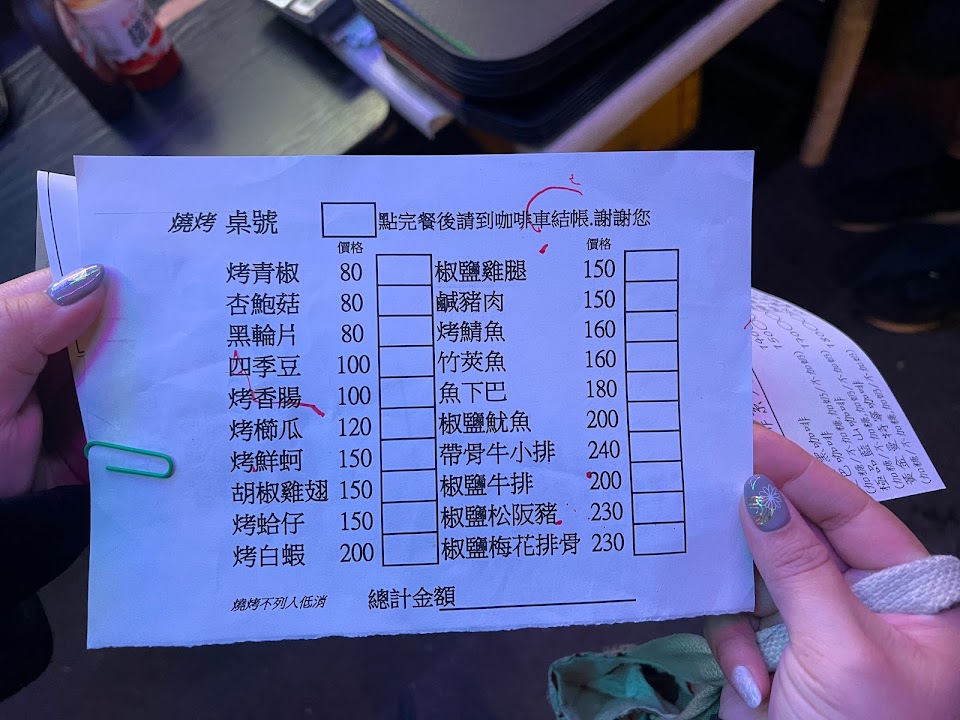 燒烤 桌號
點完餐後請到咖啡車結帳.謝謝您
價格
烤青椒 80
杏鮑菇 80
黑輪片 80
四季豆 100
烤香腸 100
烤櫛瓜 120
烤鮮蚵 150
胡椒雞翅 150
烤蛤仔 150
烤白蝦 200
價格
椒鹽雞腿 150
鹹豬肉 150
烤鯖魚 160
竹莢魚 160
魚下巴 180
椒鹽魷魚 200
帶骨牛小排 240
椒鹽牛排 200
椒鹽松阪豬 230
椒鹽梅花排骨 230
燒烤不列入低消
總計金額